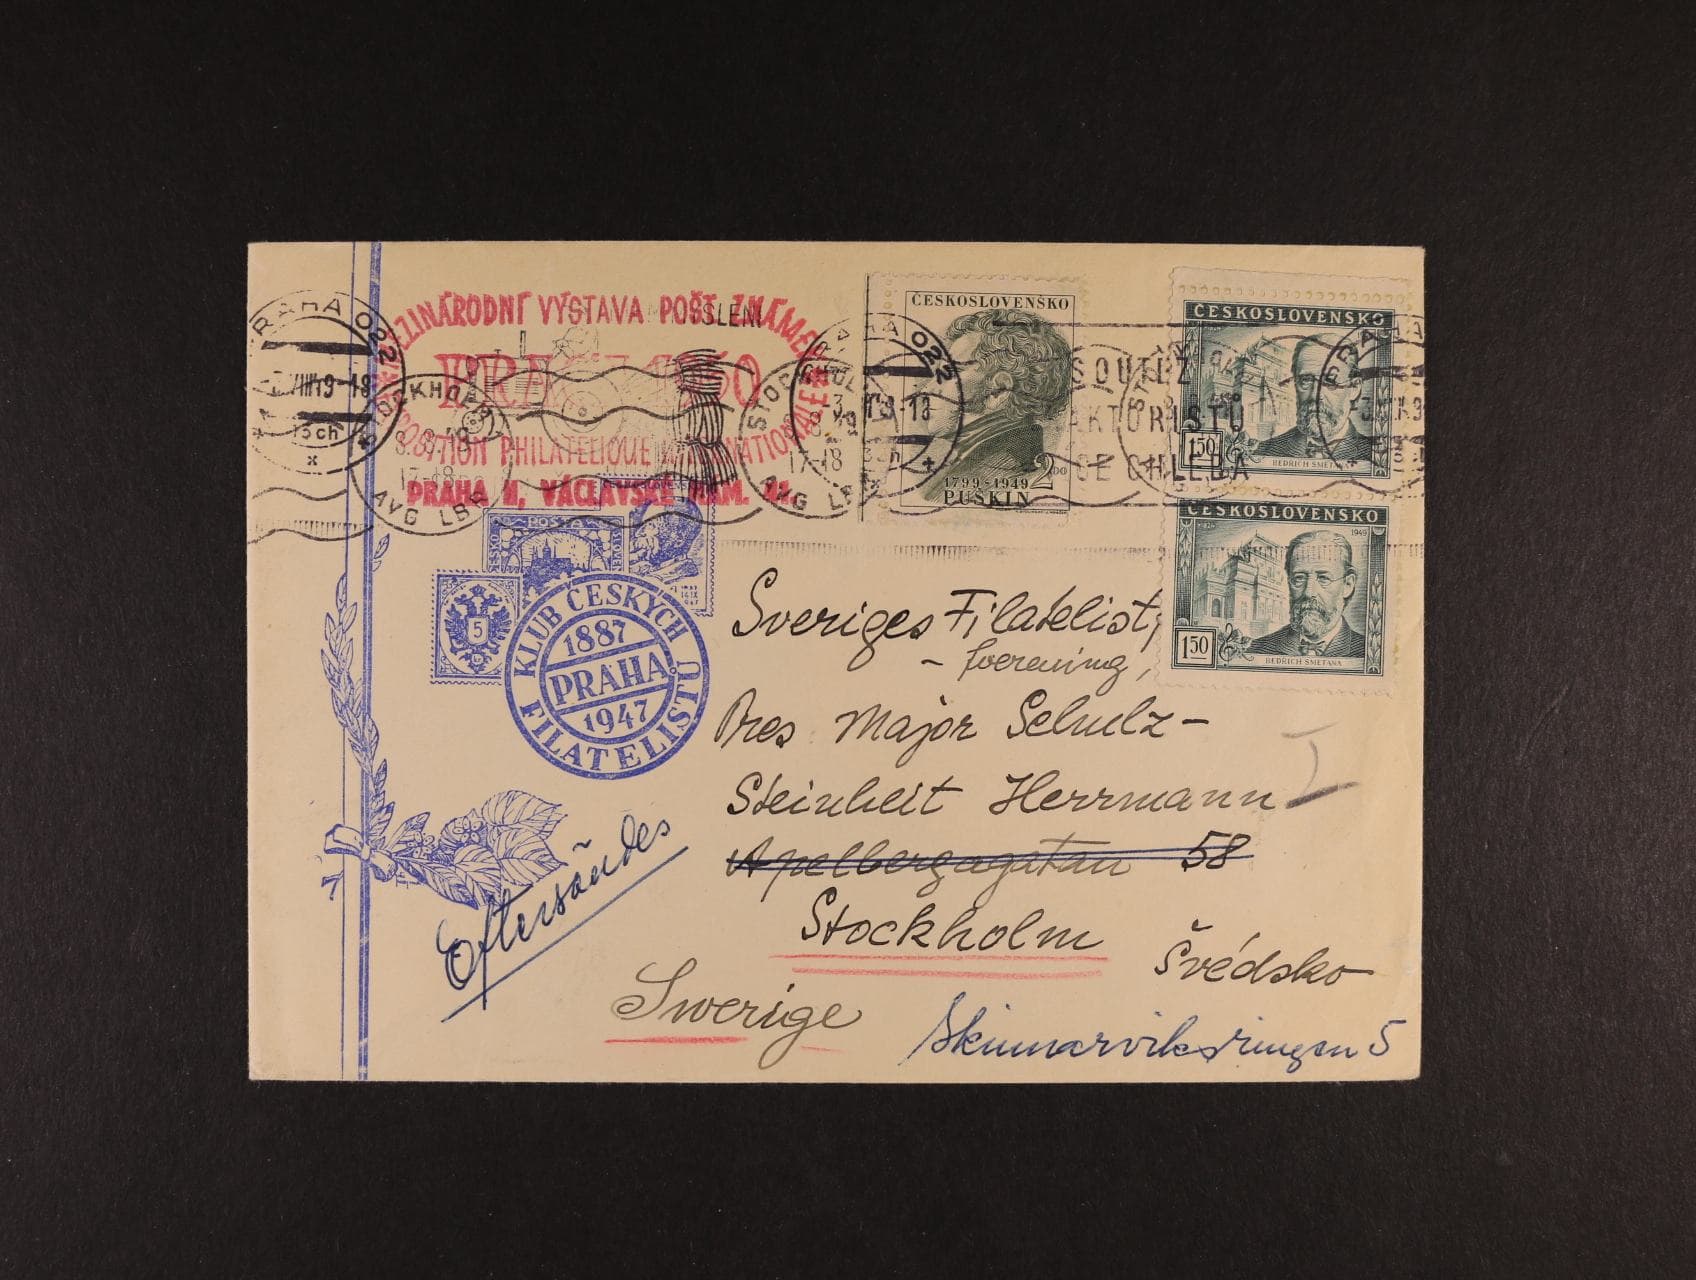 MEZINÁRODNÍ VÝSTAVA POŠT. ZNÁMEK
PRAHA 1950
EXPOSITION PHILATELIQUE INTERNATIONALE
PRAHA II, VÁCLAVSKÉ NÁM.
PRAHA 022
STOCKHOLM
8.8.49
17-18
AVG LBR
STOCKHOLM
17-18
AVG LBR
PRAHA 022
SOUTĚŽ
TRAKTORISTŮ
CHLEBA
ČESKOSLOVENSKO
1799-1949
PUŠKIN
2
ČESKOSLOVENSKO
1.50
BEDŘICH SMETANA
ČESKOSLOVENSKO
1949
1.50
BEDŘICH SMETANA
POŠTA
5
KLUB ČESKÝCH FILATELISTŮ
1887
PRAHA
1947
Sveriges Filatelist,
- foerening,
Pres Major Schulz-
Steinheit Herrmann
Apelbergsgatan 58
Stockholm
Švédsko
Swerige
Skinnarviksringen 5
Eftersändes
I